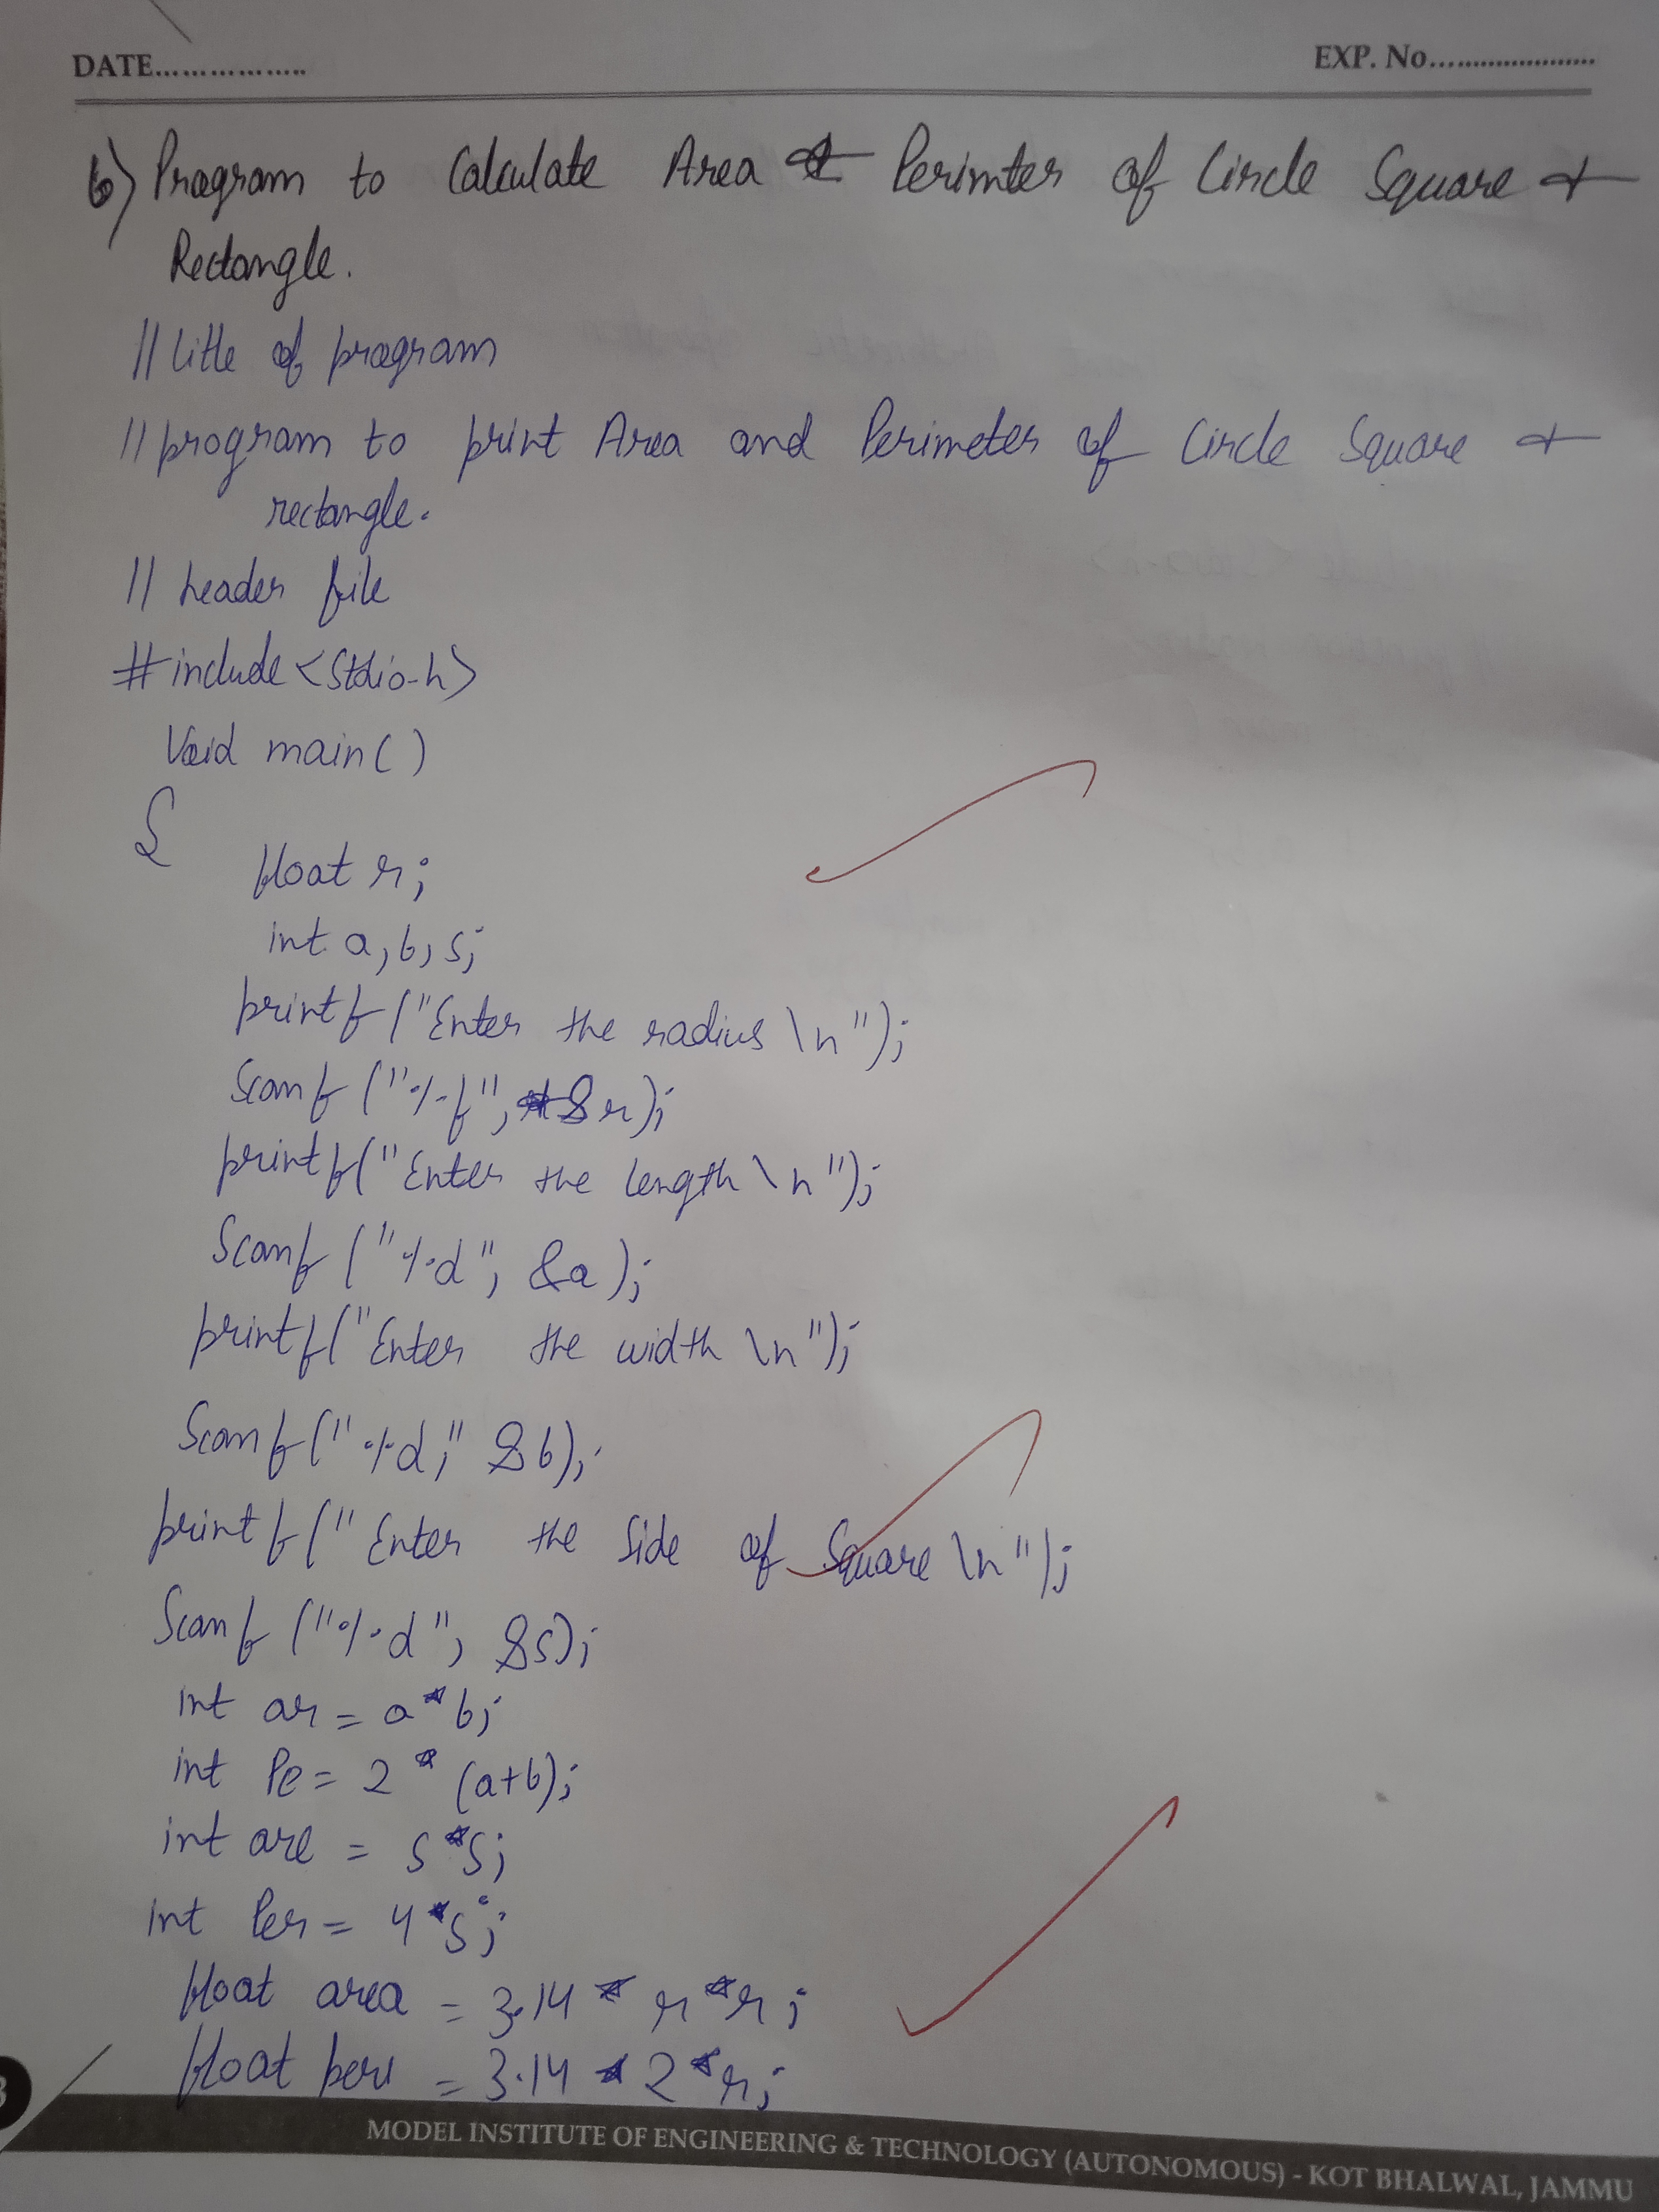 DATE.................. EXP. No......................
6) Program to Calculate Area & Perimter of Circle Square &
Rectangle.
// title of program
// program to print Area and Perimeter of Circle Square &
rectangle.
// header file
#include <stdio.h>
Void main()
{
float r;
int a, b, s;
printf("Enter the radius \n");
Scanf ("%f", &r);
printf("Enter the length \n");
Scanf ("%d", &a);
printf("Enter the width \n");
Scanf("%d," &b);
printf(" Enter the Side of Square \n");
Scanf ("%d", &s);
int ar = a*b;
int Pe = 2 * (a+b);
int are = s*s;
int Per = 4*s;
float area = 3.14 * r*r;
float peri = 3.14 * 2*r;
3
MODEL INSTITUTE OF ENGINEERING & TECHNOLOGY (AUTONOMOUS) - KOT BHALWAL, JAMMU